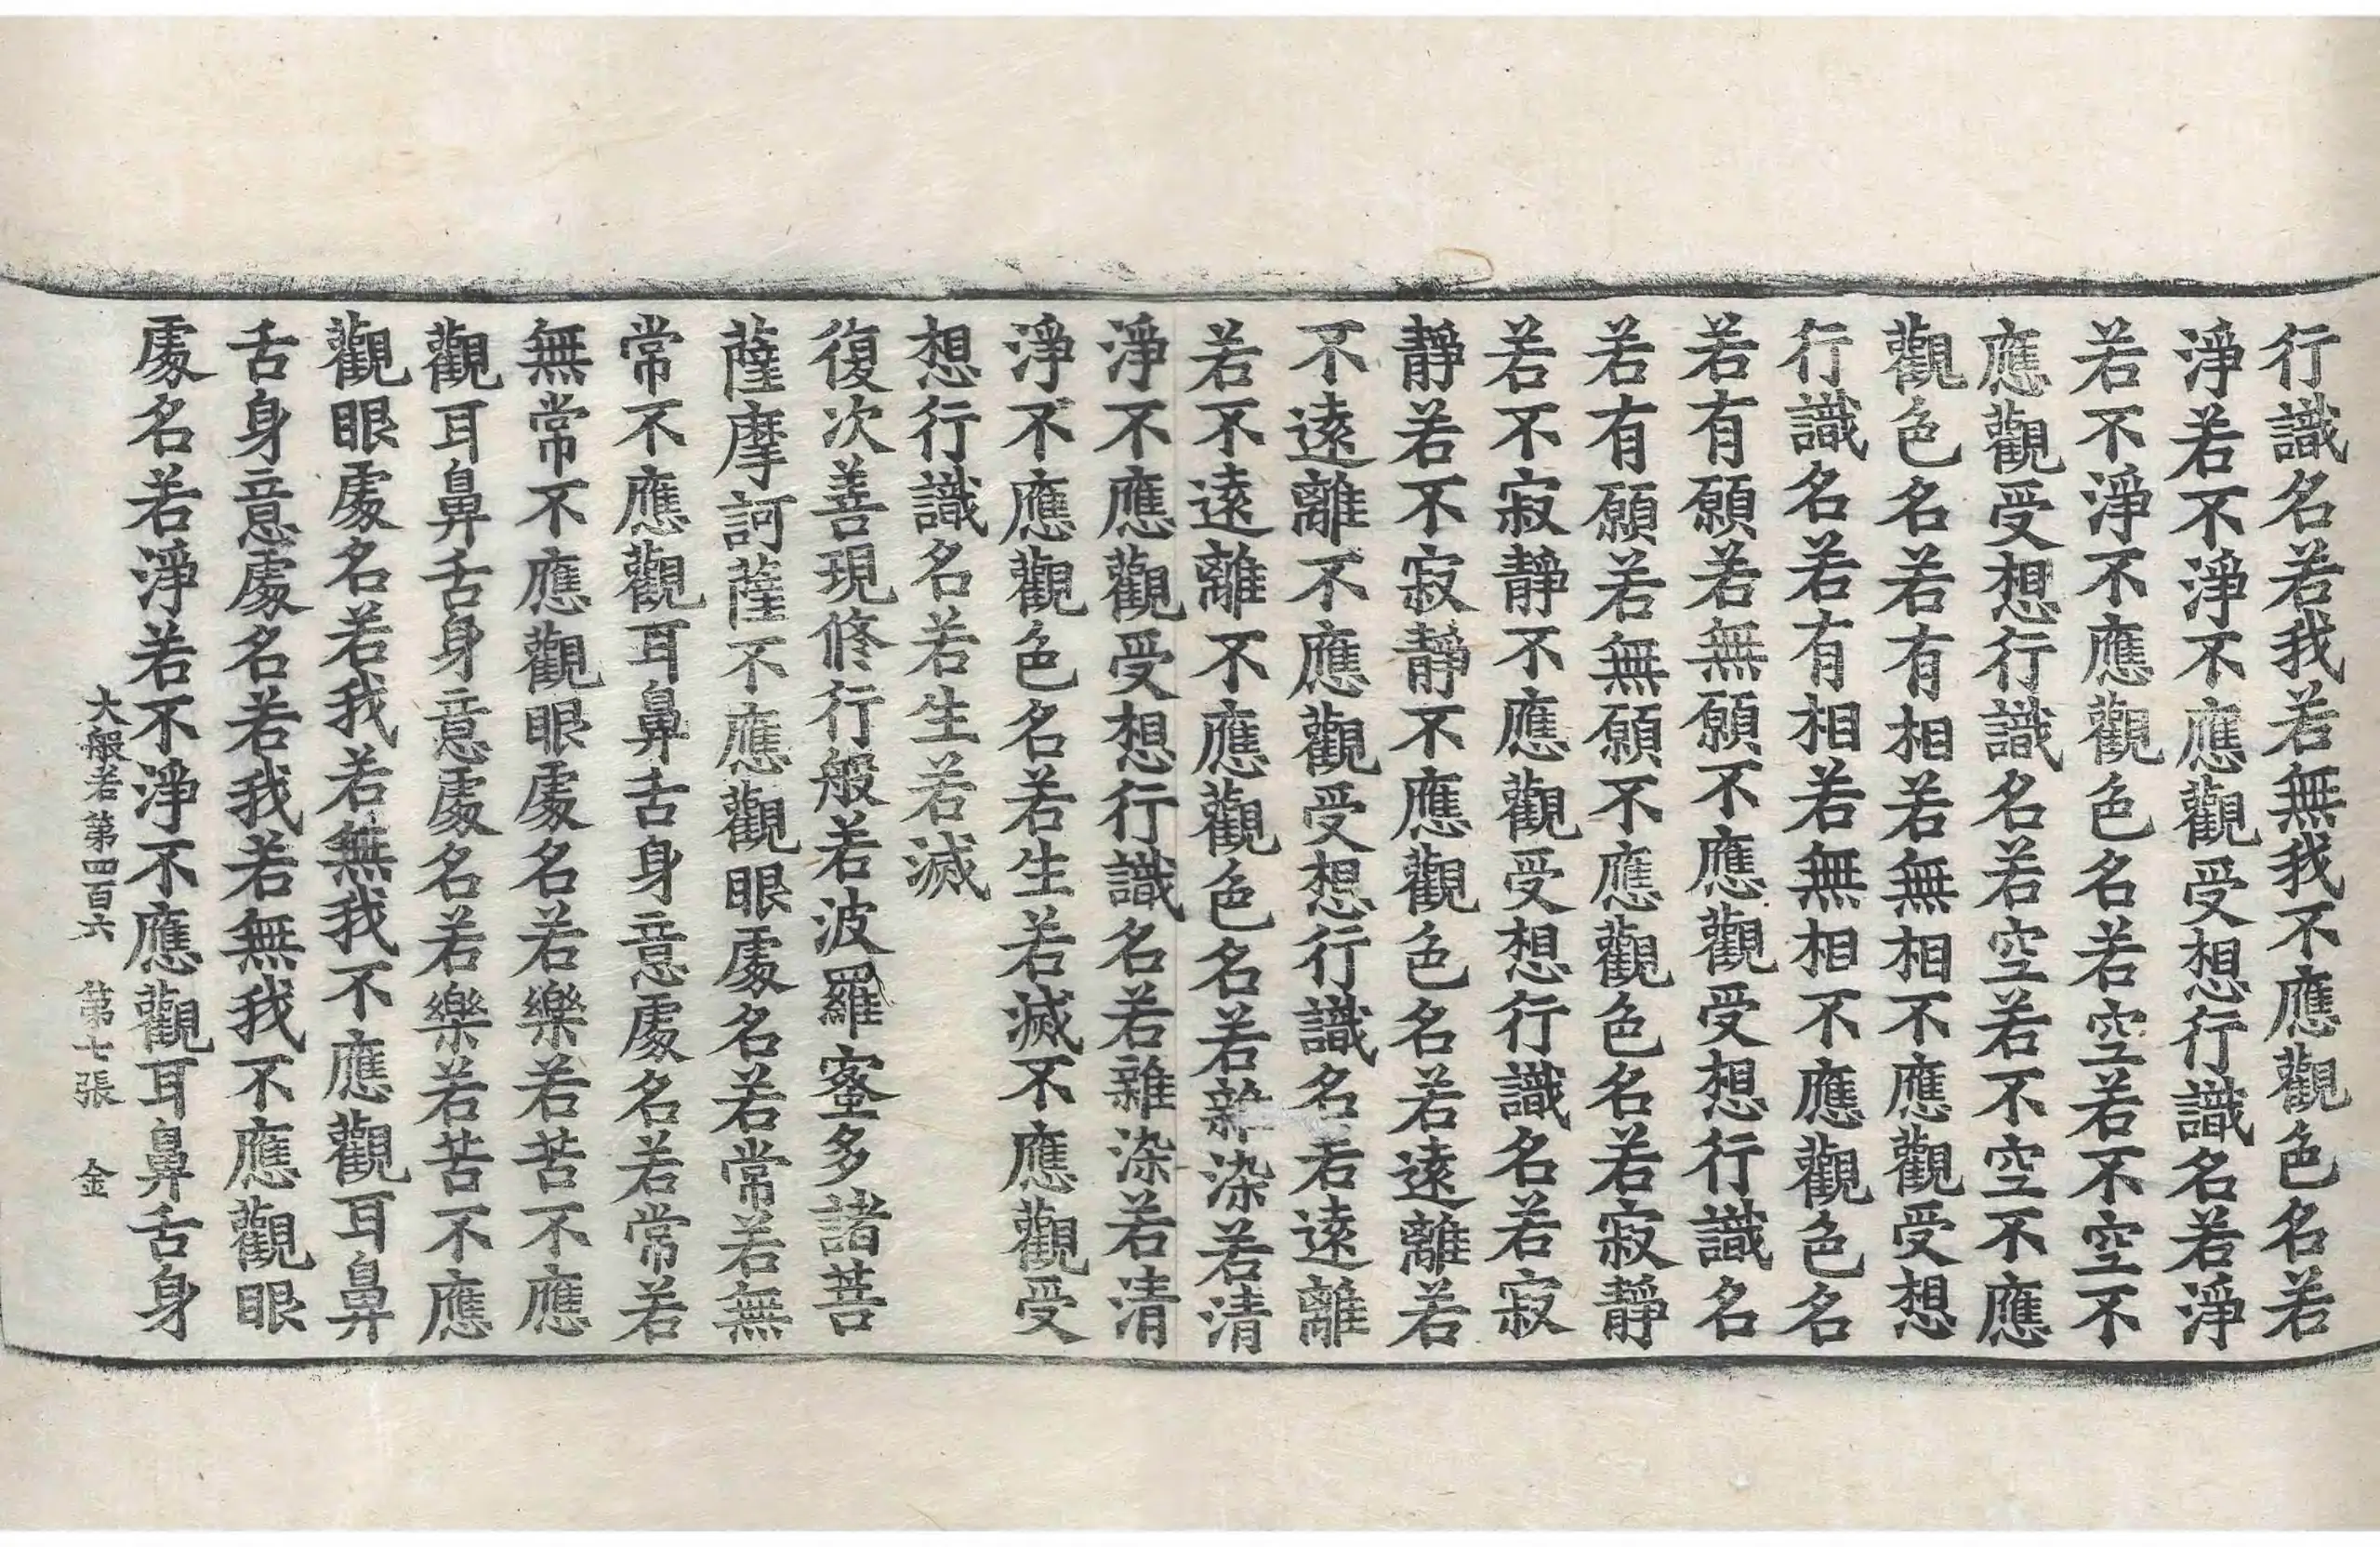 行識名若我若無我不應觀色名若
淨若不淨不應觀受想行識名若淨
若不淨不應觀色名若空若不空不
應觀受想行識名若空若不空不應
觀色名若有相若無相不應觀受想
行識名若有相若無相不應觀色名
若有願若無願不應觀受想行識名
若有願若無願不應觀色名若寂靜
若不寂靜不應觀受想行識名若寂
靜若不寂靜不應觀色名若遠離若
不遠離不應觀受想行識名若遠離
若不遠離不應觀色名若雜染若清
淨不應觀受想行識名若雜染若清
淨不應觀色名若生若滅不應觀受
想行識名若生若滅
復次善現修行般若波羅蜜多諸菩
薩摩訶薩不應觀眼處名若常若無
常不應觀耳鼻舌身意處名若常若
無常不應觀眼處名若樂若苦不應
觀耳鼻舌身意處名若樂若苦不應
觀眼處名若我若無我不應觀耳鼻
舌身意處名若我若無我不應觀眼
處名若淨若不淨不應觀耳鼻舌身
大般若第四百六 第七張 金